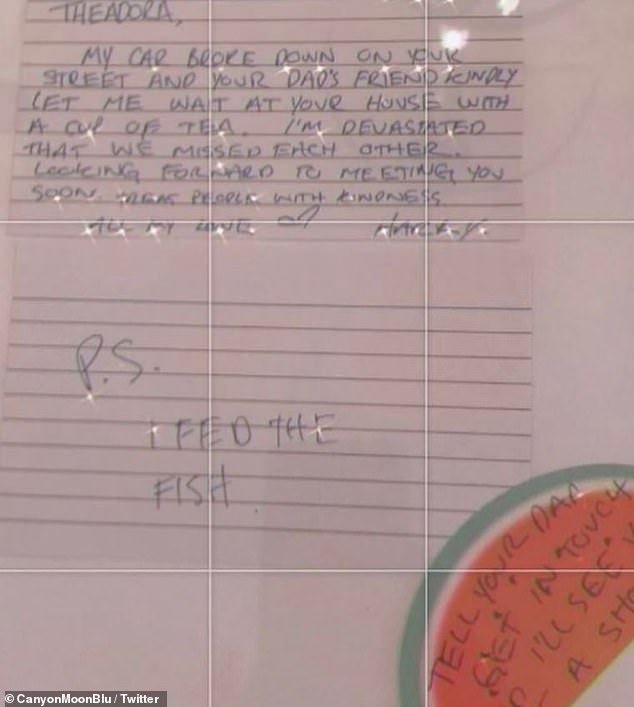 THEADORA,
MY CAR BROKE DOWN ON YOUR
STREET AND YOUR DAD'S FRIEND KINDLY
LET ME WAIT AT YOUR HOUSE WITH
A CUP OF TEA. I'M DEVASTATED
THAT WE MISSED EACH OTHER.
LOOKING FORWARD TO MEETING YOU
SOON. TREAT PEOPLE WITH KINDNESS
ALL MY LOVE HARRY.
P.S.
I FED THE
FISH.
TELL YOUR DAD
GET IN TOUCH
I'LL SEE
A
© CanyonMoonBlu / Twitter